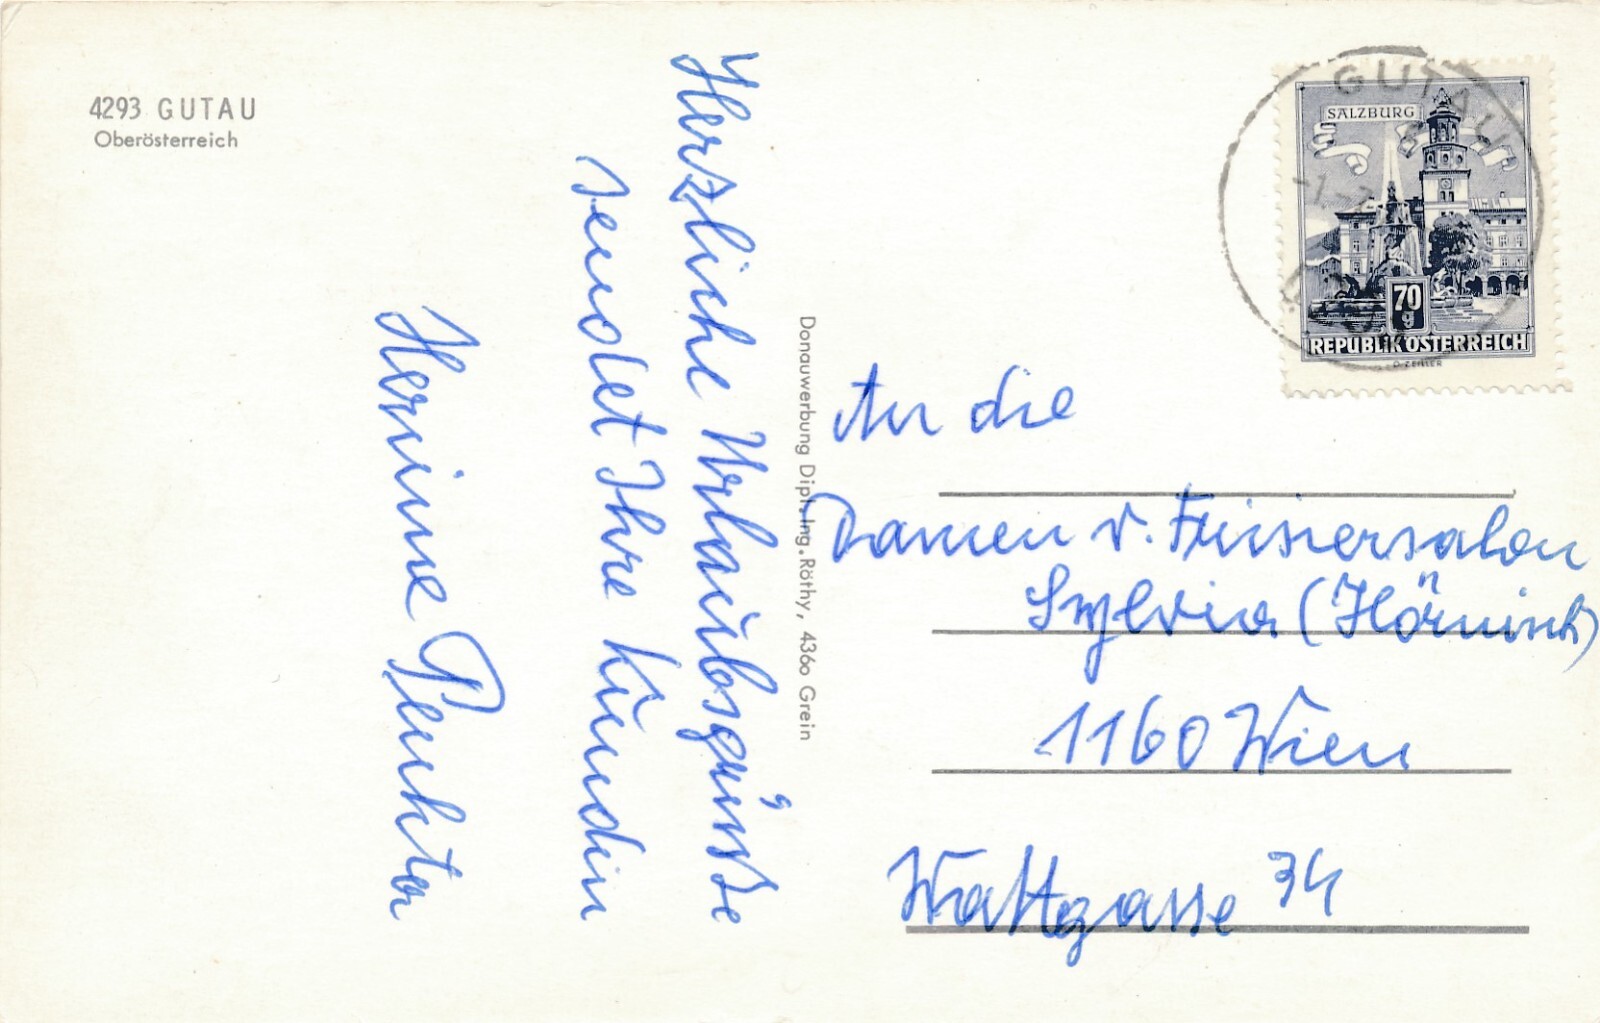 4293 GUTAU
Oberösterreich
Herzliche Urlaubsgrüsse
sendet Ihre Kundin
Hermine
Donauwerbung Dipl. Ing. Röthy, 4360 Grein
GUTAU
SALZBURG
70
g
REPUBLIK ÖSTERREICH
An die
Damen v. Frisiersalon
Sylvia (Hörnisch)
1160 Wien
Wattgasse 34